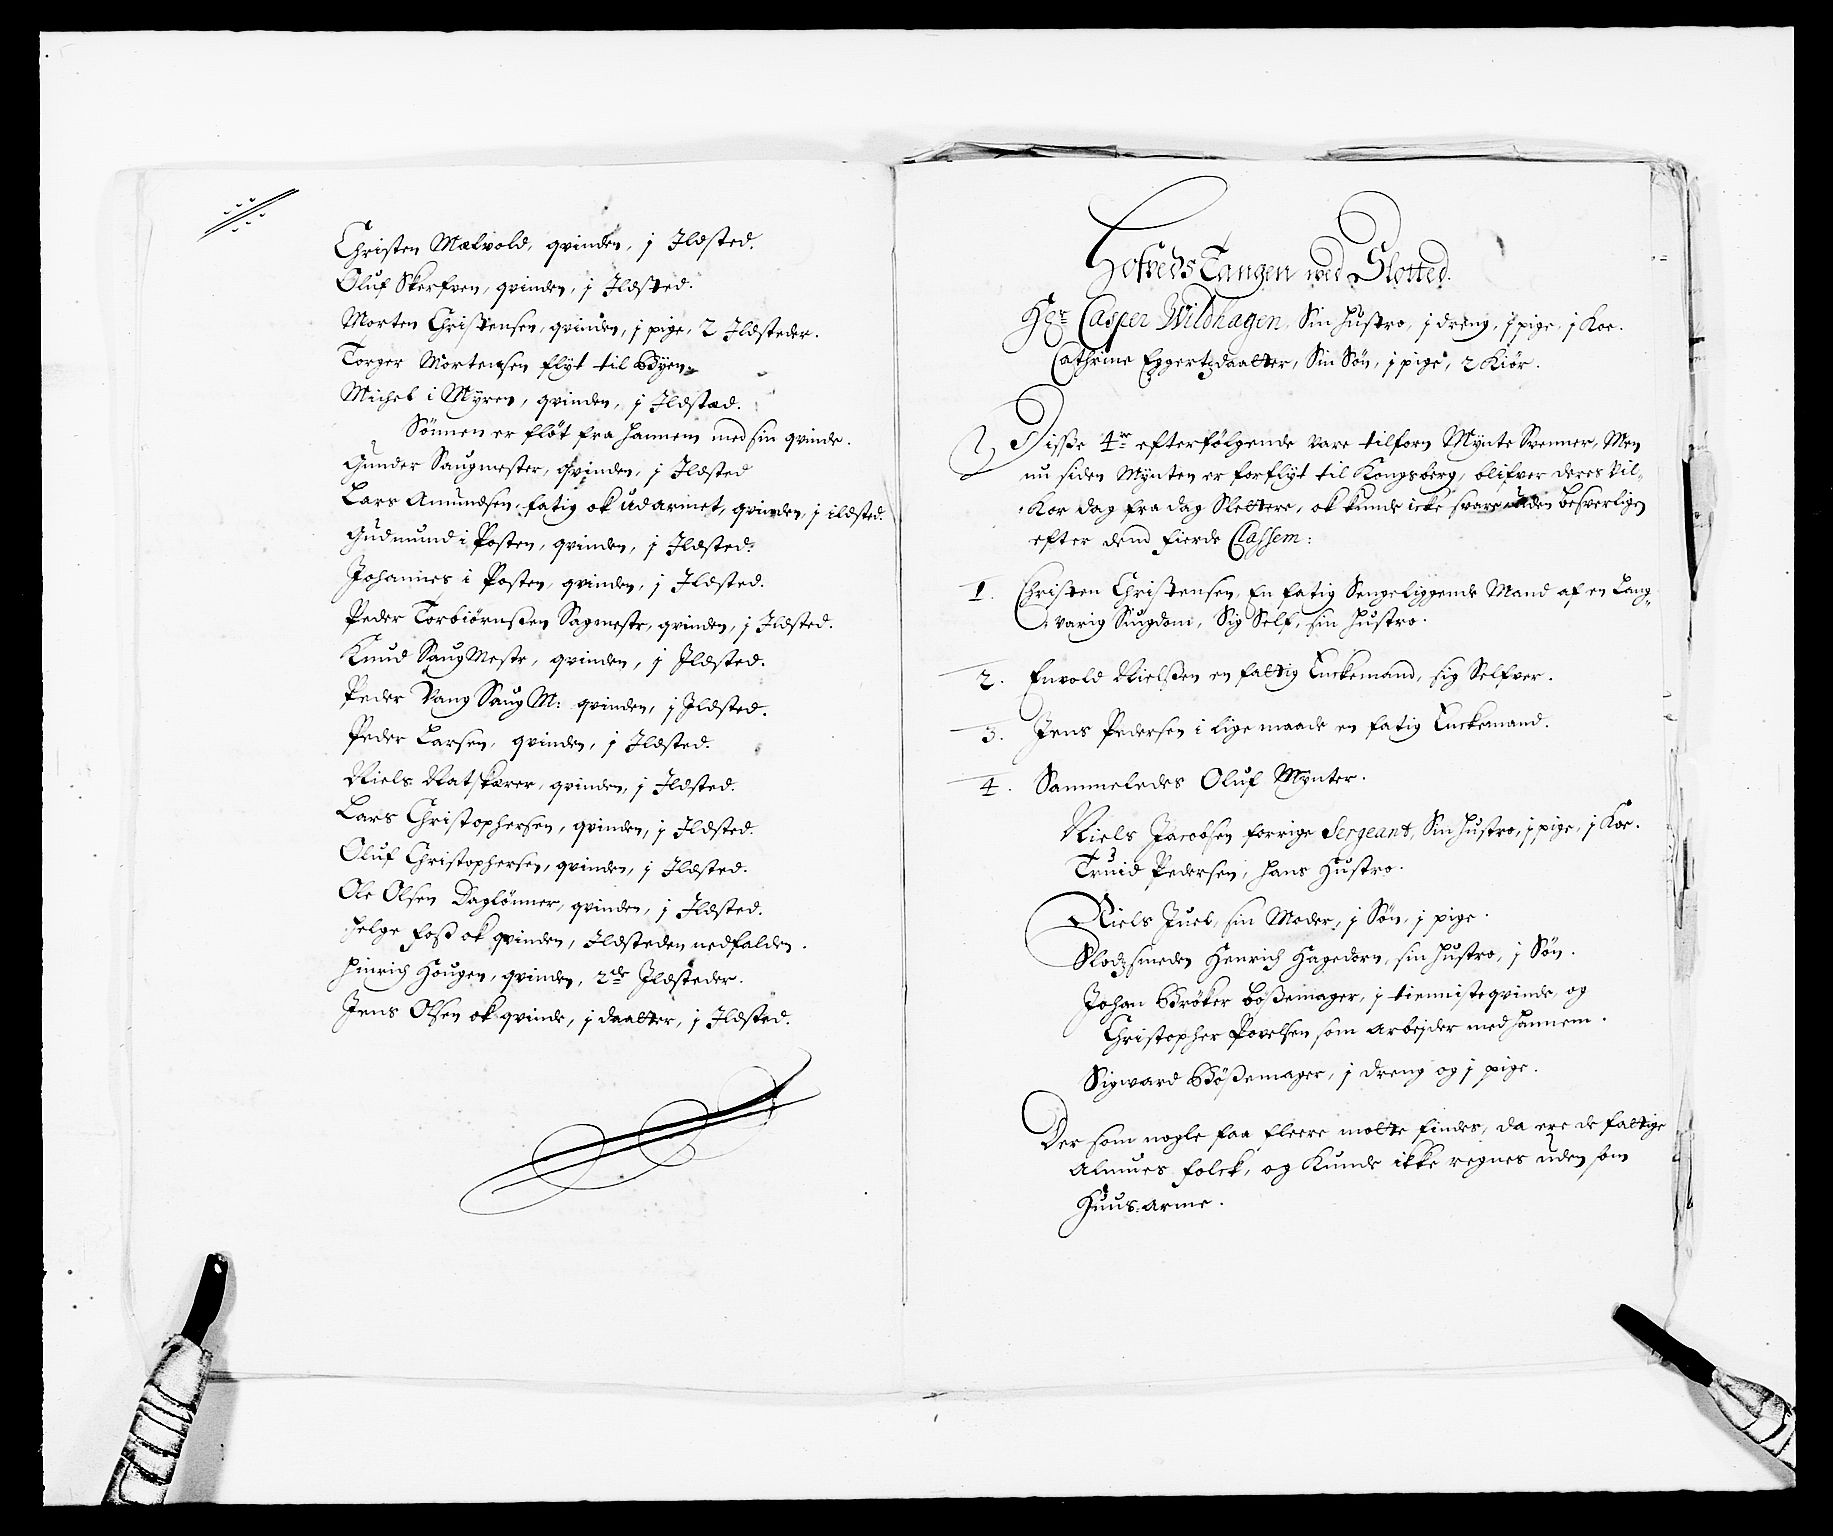 Christen Mælvold, qvinden, j Ildsted.
Oluf Skerfven, qvinden, j Ildsted.
Morten Christensen, qvinden, j pige, 2 Ildsteder.
Torger Mortensen flyt til Byen.
Michel i Myren, qvinden, j Ildstæd.
Sönnen er flöt fra hannem med sin qvinde.
Gunder Saugmester, qvinden, j Ildsted
Lars Amundsen, fatig ok udarmet, qvinden, j ildsted.
Gudmund i Posten, qvinden, j Ildsted.
Johannes i Posten, qvinden, j Ildsted.
Peder Torbiörnßen Sagmestr, qvinden, j Ildsted.
Knud SaugMestr, qvinden, j Ildsted.
Peder Vang Saug M: qvinden, j Ildsted.
Peder Larsen, qvinden, j Ildsted.
Niels Natskærer, qvinden, j Ildsted.
Lars Christophersen, qvinden, j Ildsted.
Oluf Christophersen, qvinden, j Ildsted.
Ole Olsen Daglönner, qvinden, j Ildsted.
Helge Foß ok qvinden, Ildsteden nedfalden.
Hinrich Hougen, qvinden, 2de Ildsteder.
Jens Olsen ok qvinde, j daatter, j Ildsted.
Hofveds Tangen ved Slotted.
Hr Casper Wildhagen, Sin Hustro, j dreng, j pige, j Koe.
Cathrine Eggertzdaatter, Sin Sön, j pige, 2 Kiör.
Disße 4re efterfölgende vare tilforn Mynte Svenner, Men
nu siden Mynten er forflyt til Kongsberg, blifver deres Vil-
Kor dag fra dag Slettere, ok kunde icke svare uden besverligen
efter dend fierde Classem:
1. Christen Christensen, En fatig Sengeliggende Mand af en Lang-
varig Siugdom, Sig Self, sin Hustro.
2. Envold Nielßen en fattig Enckemand, sig Selfver.
3. Jens Pedersen i lige maade en fatig Enckemand.
4. Sammeledes Oluf Mynter.
Niels Jacobsen forrige Sergeant, Sin Hustro, j pige, j Koe.
Truid Pedersen, hans Hustro.
Niels Juel, sin Moder, j Sön, j pige.
Slodzsmeden Henrich Hagedorn, sin Hustro, j Sön.
Johan Bröker Bößemager, j tiennisteqvinde, og
Christopher Povelsen som arbejder med hannem.
Sigvard Bößemager, j dreng og j pige.
Der som nogle faa fleere motte findes, da ere de fattige
Almues folck, og Kunde ikke regnes uden som
Huus-arme.